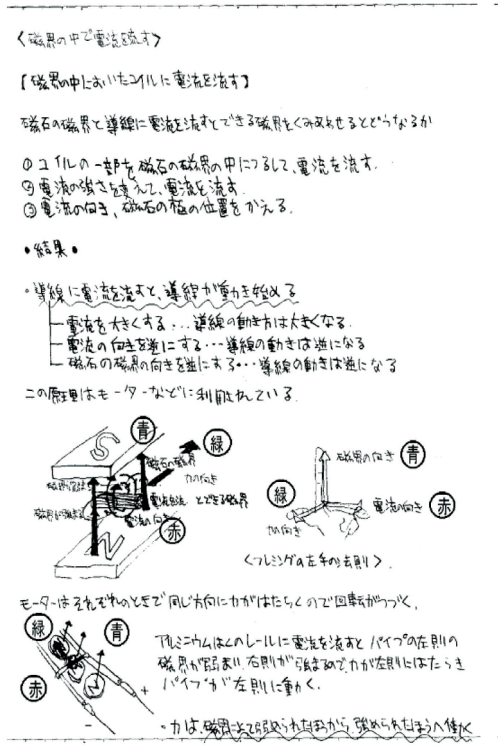 〈磁界の中で電流を流す〉
【磁界の中においたコイルに電流を流す】
磁石の磁界と導線に電流を流すとできる磁界をくみあわせるとどうなるか
①コイルの一部を磁石の磁界の中につるして、電流を流す.
②電流の強さを変えて、電流を流す.
③電流の向き、磁石の極の位置をかえる.
•結果•
・導線に電流を流すと、導線が動き始める
電流を大きくする・・・導線の動き方は大きくなる.
電流の向きを逆にする・・・導線の動きは逆になる
磁石の磁界の向きを逆にする・・・導線の動きは逆になる
この原理はモーターなどに利用されている.
S
青
緑
磁石の磁界
力の向き
電流を流すとできる磁界
電流の向き
赤
N
磁界の向き
青
緑
力の向き
電流の向き
赤
〈フレミングの左手の法則〉
モーターはそれぞれのときで同じ方向に力がはたらくので回転がつづく.
緑
青
赤
N
+
-
アルミニウムはくのレールに電流を流すとパイプの左則の
磁界が弱まい右則が強まるので、力が左則にはたらき
パイプが左則に動く.
・力は、磁界によって弱められたほうから、強められたほうへ働く